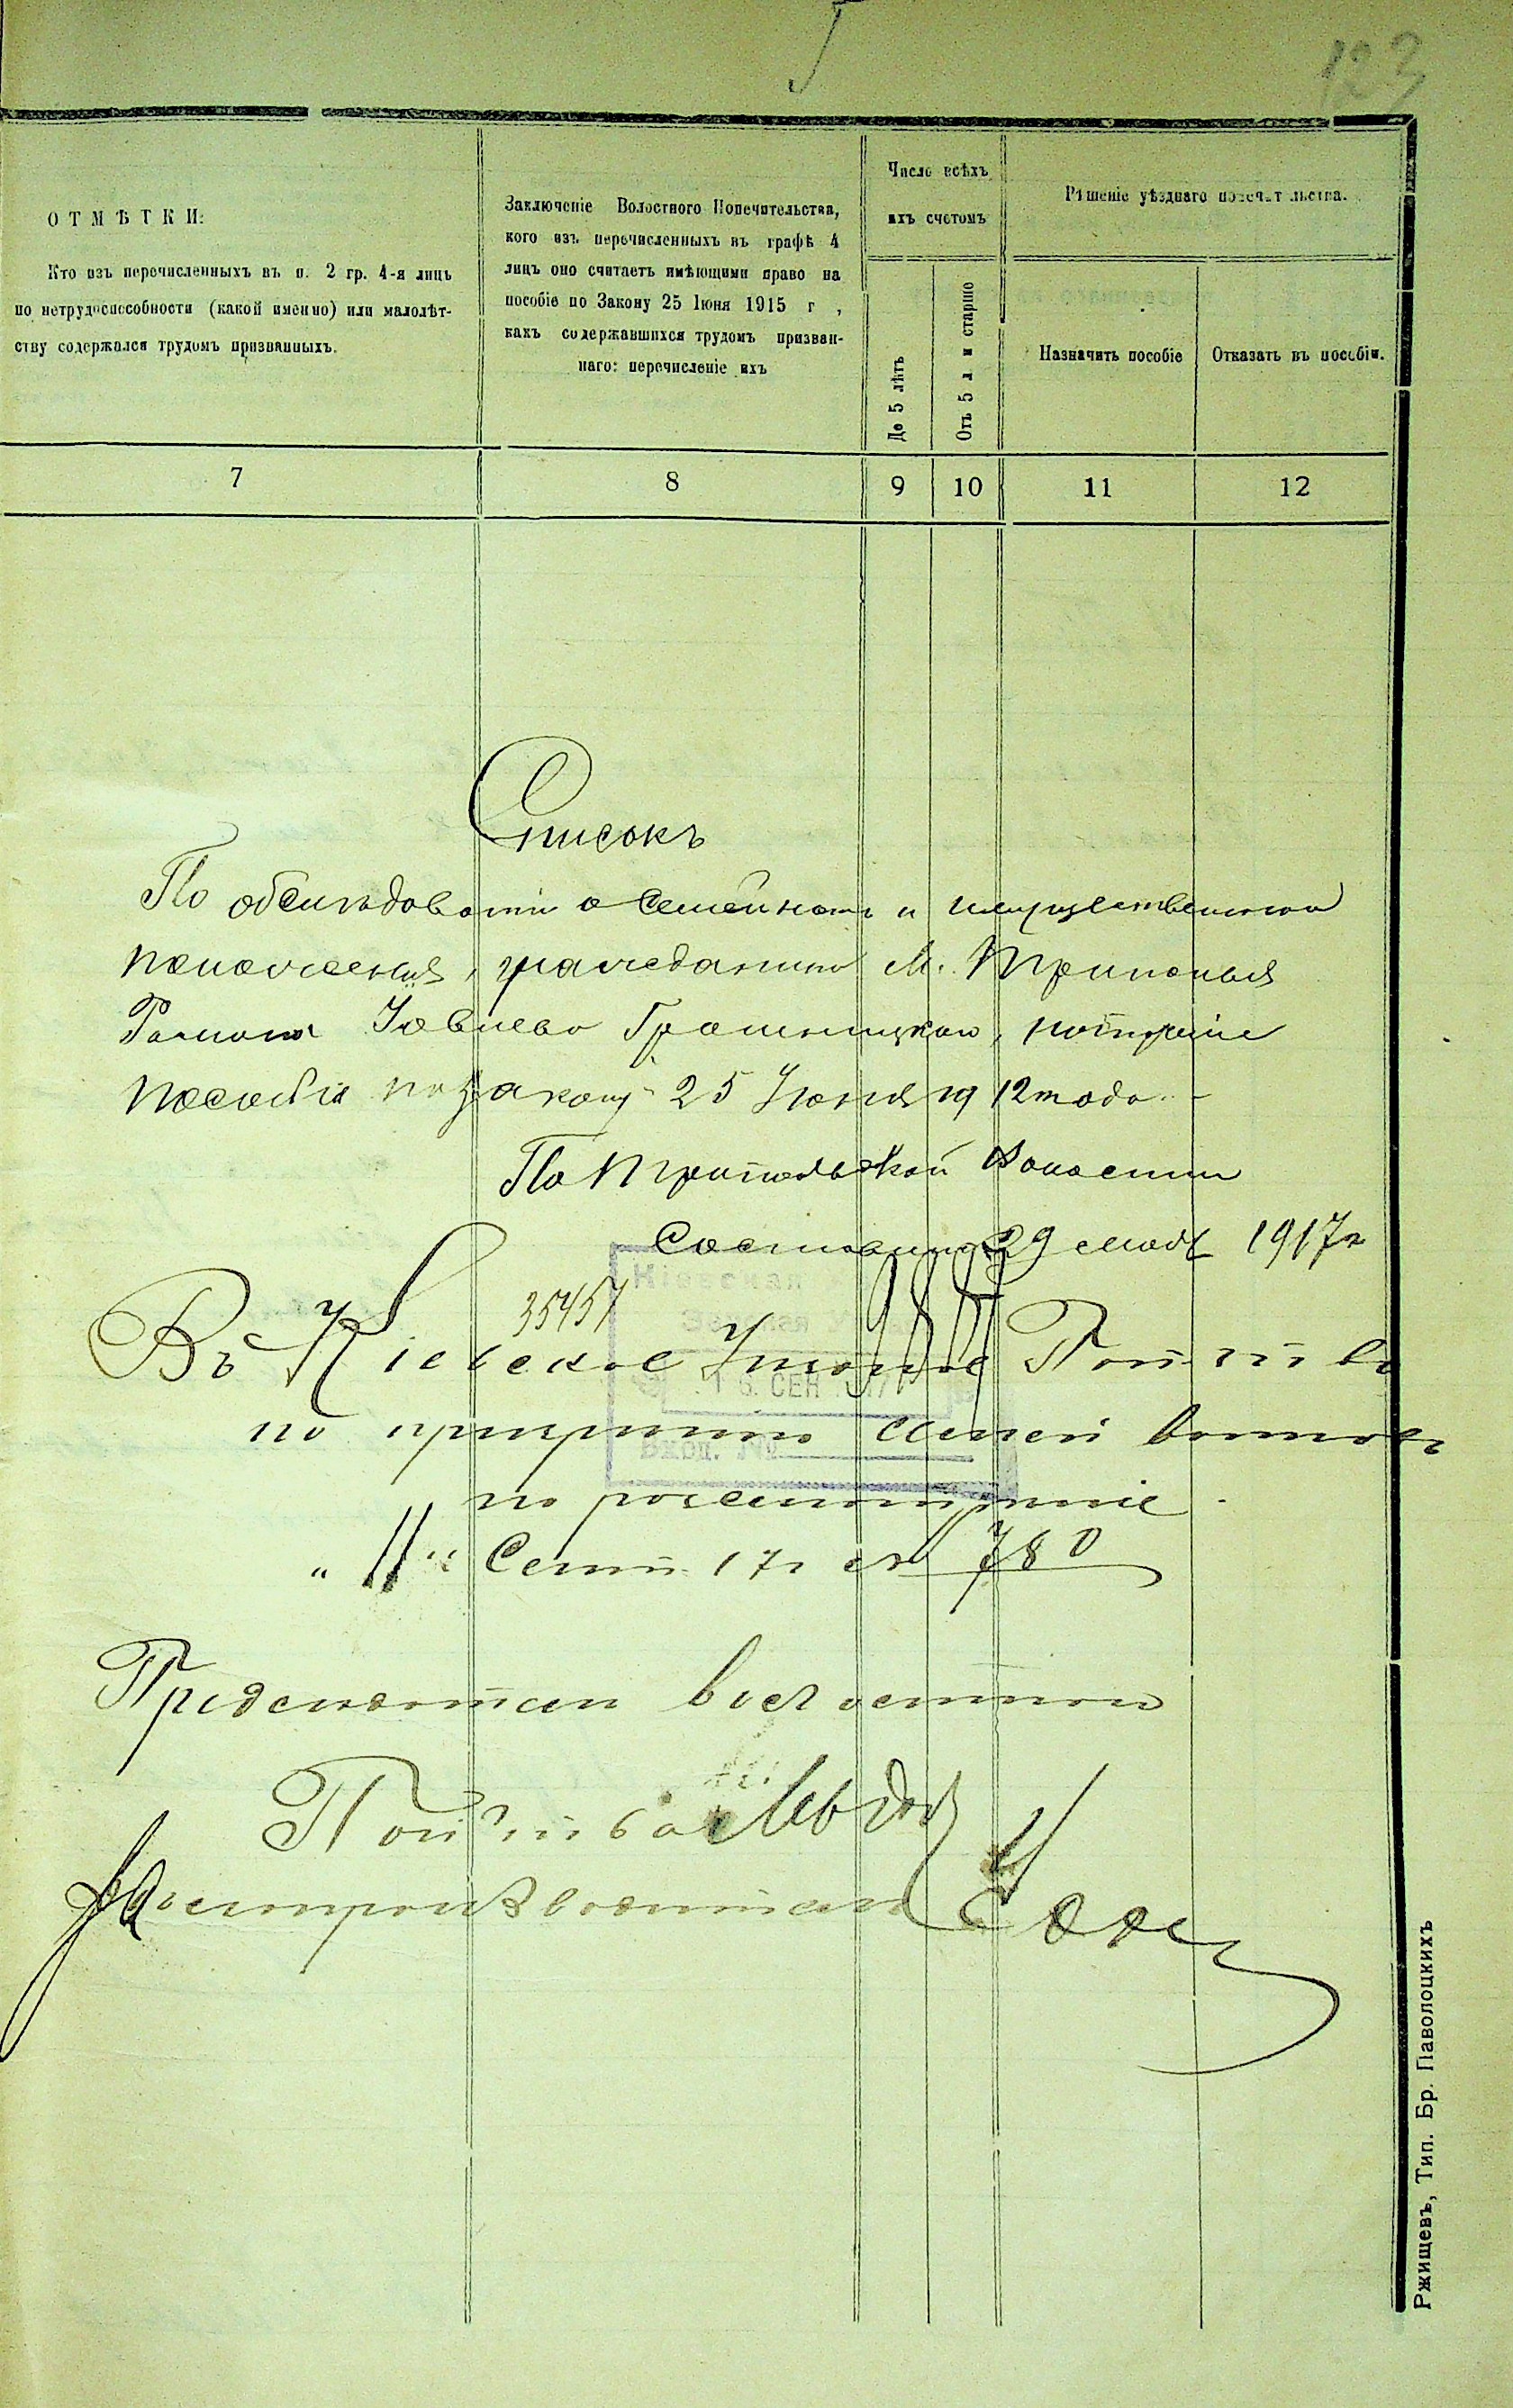 123
ОТМѢТКИ:
Кто изъ перечисленныхъ въ п. 2 гр. 4-я лицъ
по нетрудоспособности (какой именно) или малолѣт-
ству содержался трудомъ призванныхъ.
Заключеніе Волостного Попечительства,
кого изъ перечисленныхъ въ графѣ 4
лицъ оно считаетъ имѣющими право на
пособіе по Закону 25 Іюня 1915 г ,
какъ содержавшихся трудомъ призван-
наго: перечисленіе ихъ
Число всѣхъ
ихъ счетомъ
До 5 лѣтъ
Отъ 5 л и старше
Рѣшеніе уѣзднаго попечительства.
Назначить пособіе
Отказать въ пособіи.
7 8 9 10 11 12
Списокъ
По обслѣдованіи о Семейномъ и имущественном
положенія, гражданина М. Триполья
Романа
пособія по закону 25 Іюня 1912 года.
По Трипольской Волости
Составленъ 29 1917г
35457
Кіевская
16. СЕН 1917
Вход. №
Въ Кіевское Уѣздное Поп-тво
по призрѣнію семей воинов
по разсмотрѣніе.
„ 11 " Сент. 17г № 780
Предсѣдатель волостного
Поп-тва
Дѣлопроизводитель
Ржищевъ, Тип. Бр. Паволоцкихъ